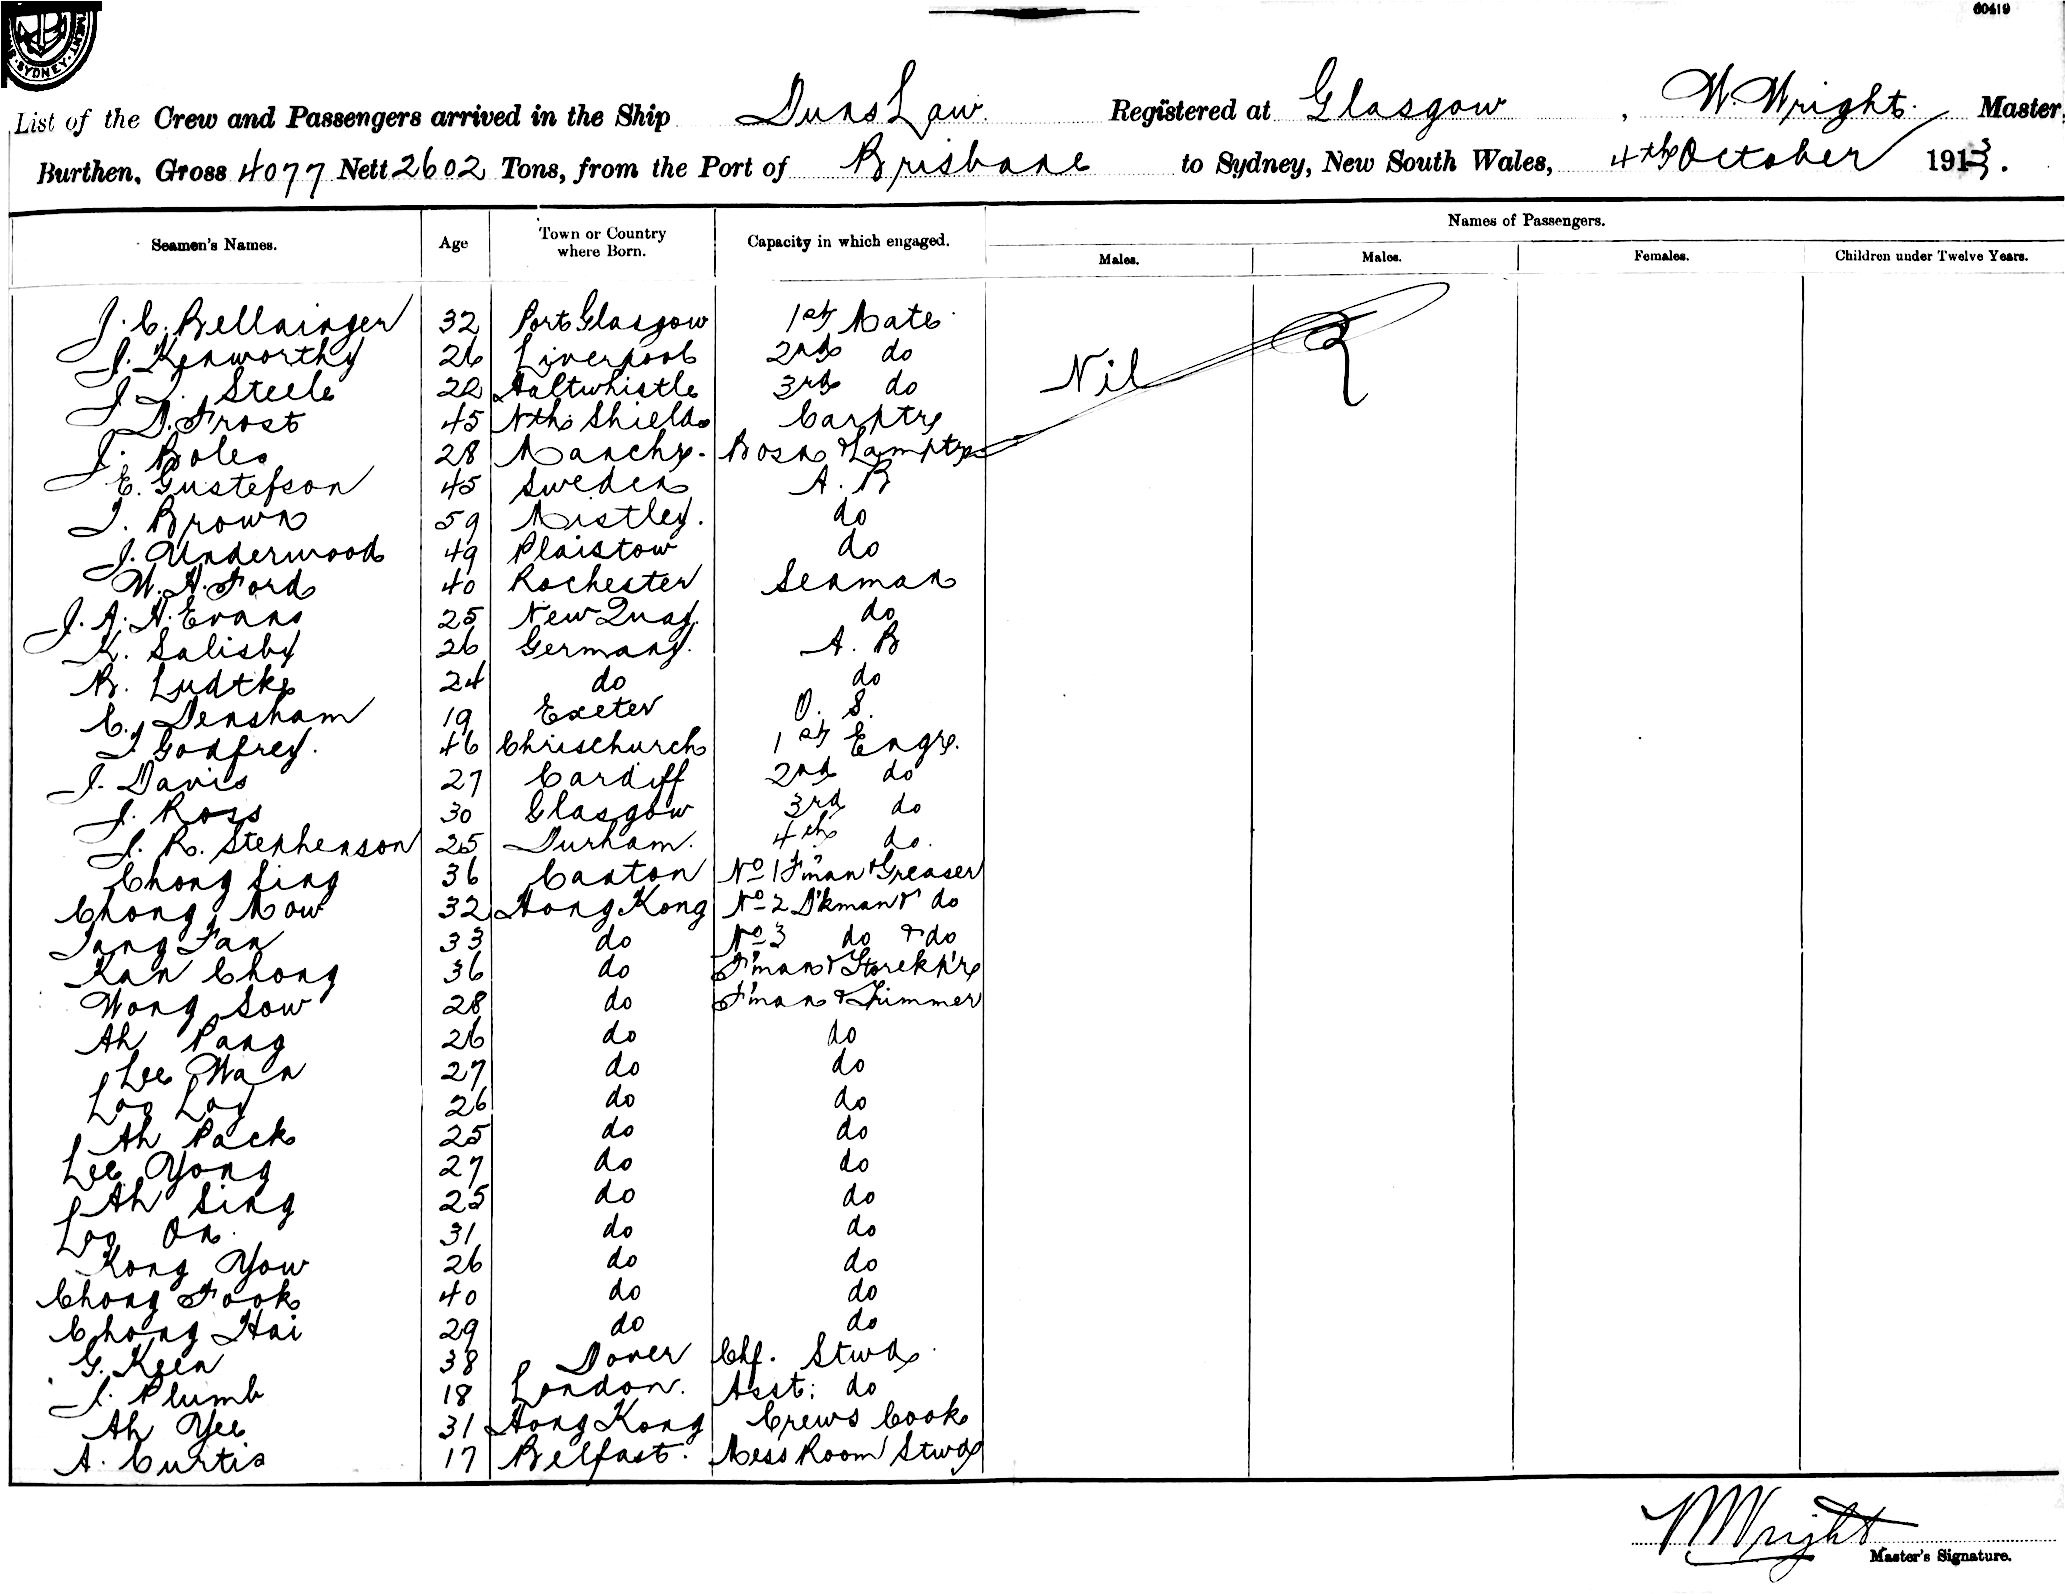 60419
SYDNEY
List of the Crew and Passengers arrived in the Ship Duns Law. Registered at Glasgow, W. Wright. Master,
Burthen, Gross 4077 Nett 2602 Tons, from the Port of Brisbane to Sydney, New South Wales, 4th October 1913.
Seamen's Names. Age Town or Country where Born. Capacity in which engaged. Names of Passengers.
Males. Males. Females. Children under Twelve Years.
J. C. Bellainger 32 Port Glasgow 1st Mate
J. Kenworthy 26 Liverpool 2nd do
J. J. Steele 22 Haltwhistle 3rd do Nil
D. Frost 45 Nth Shields Carptr
J. Boles 28 Manchr. Bosn & Lamptr
E. Gustefson 45 Sweden A. B
J. Brown 59 Mistley. do
J. Underwood 49 Plaistow do
W. H. Ford 40 Rochester Seaman
J. A. H. Evans 25 New Quay. do
K. Salisby 26 Germany. A. B
B. Ludtke 24 do do
C. Densham 19 Exeter O. S.
J Godfrey. 46 Chrischurch 1st Engr.
J. Davis 27 Cardiff 2nd do
J. Ross 30 Glasgow 3rd do
J. R. Stephenson 25 Durham. 4th do.
Chong Sing 36 Canton No 1 F'man & Greaser
Chong Mow 32 Hong Kong No 2 D'kman & do
Tang Fan 33 do No 3 do & do
Kan Chong 36 do F'man & Storekp'r
Wong Sow 28 do F'man & Trimmer
Ah Pang 26 do do
Lee Wan 27 do do
Loo Loy 26 do do
Ah Pack 25 do do
Lee Yong 27 do do
Ah Sing 25 do do
Loo On. 31 do do
Kong Yow 26 do do
Chong Fook 40 do do
Chong Hai 29 do do
G. Keen 38 Dover Chf. Stwd
J. Plumb 18 London. Asst: do
Ah Yee 31 Hong Kong Crews Cook
A. Curtis 17 Belfast. Mess Room Stwd
W Wright
Master's Signature.